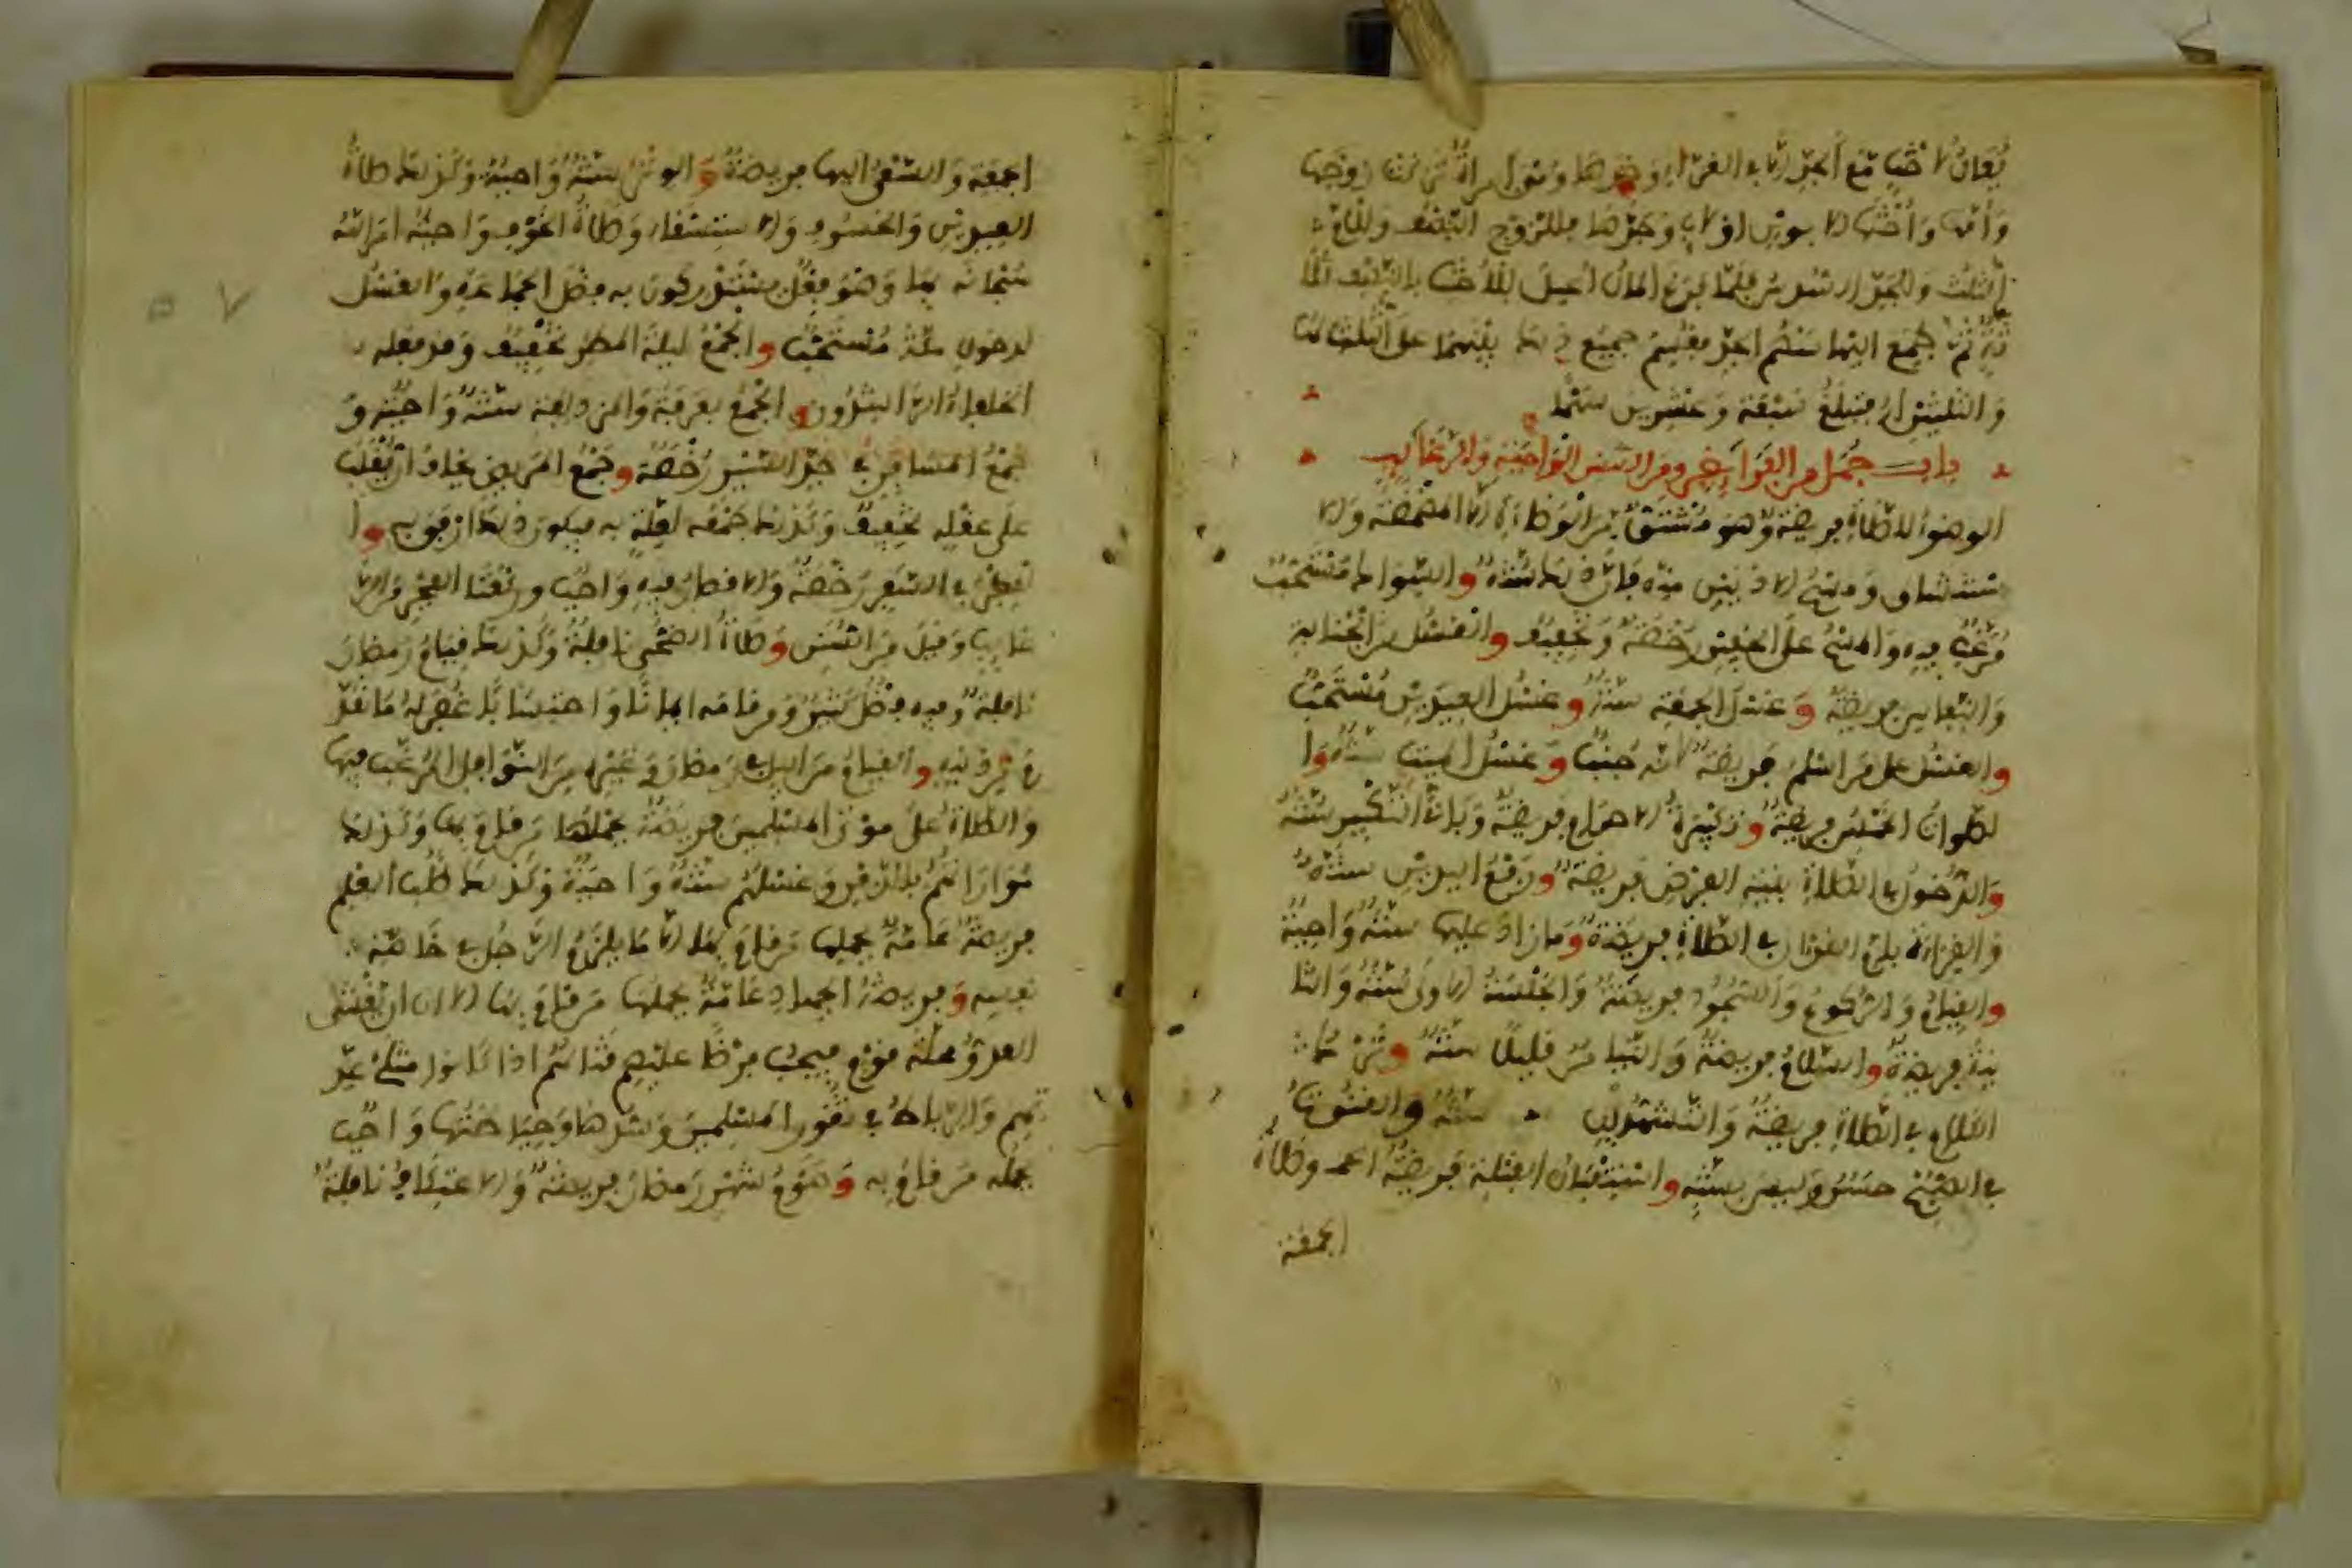 يُعَالُ للأخت مع الجد إلا في الغراء وحدها وهي امرأة تركت زوجها
وأمها وأختها لأبوين أو لأب وجدها فللزوج النصف وللأم
الثلث وللجد السدس فلما فرغ المال أعيل للأخت بالنصف ثلا
ثة ثم جمع إليها سهم الجد فيقسم جميع ذلك بينهما على الثلث لها
والثلثين له فتبلغ سبعة وعشرين سهما
باب جمل من الفرائض ومن السنن الواجبة والرغائب
الوضوء للصلاة فريضة وهو مشتق من الوضاءة إلا المضمضة والا
ستنشاق ومسح الأذنين منه فإن ذلك سنة والسواك مستحب
مرغب فيه والمسح على الخفين رخصة وتخفيف والغسل من الجنابة
والنفاس فريضة وغسل الجمعة سنة وغسل العيدين مستحب
والغسل على من أسلم فريضة لأنه جنب وغسل الميت سنة وا
لصلوات الخمس فريضة وتكبيرة الاحرام فريضة وباقي التكبير سنة
والدخول في الصلاة بنية الفرض فريضة ورفع اليدين سنة
والقراءة بأم القرآن في الصلاة فريضة وما زاد عليها سنة واجبة
والقيام والركوع والسجود فريضة والجلسة الأولى سنة والثا
نية فريضة والسلام فريضة والتيامن به قليلا سنة وترك
الكلام في الصلاة فريضة والتشهدان سنة والقنوت
في الصبح حسن وليس بسنة واستقبال القبلة فريضة وصلاة
الجمعة
الجمعة والسعي إليها فريضة والوتر سنة واجبة وكذلك صلاة
العيدين والخسوف والاستسقاء وصلاة الخوف واجبة أمر الله
سبحانه بها وهو فعل يستدركون به فضل الجماعة والغسل
لدخول مكة مستحب والجمع ليلة المطر تخفيف وقد فعله
الخلفاء الراشدون والجمع بعرفة والمزدلفة سنة واجبة و
جمع المسافر في جد السير رخصة وجمع المريض يخاف أن يغلب
على عقله تخفيف وكذلك جمعه لعلة به فيكون ذلك أرفق به وا
لفطر في السفر رخصة والاقصار فيه واجب وركعتا الفجر من الر
غائب وقيل من السنن وصلاة الضحى نافلة وكذلك قيام رمضان
نافلة وفيه فضل كبير ومن قامه إيمانا واحتسابا غفر له ما تقد
م من ذنبه والقيام من الليل في رمضان وغيره من النوافل المرغب فيها
والصلاة على موتى المسلمين فريضة يحملها من قام بها وكذلك
مواراتهم بالدفن وغسلهم سنة واجبة وكذلك طلب العلم
فريضة عامة يحملها من قام بها إلا ما يلزم الرجل في خاصة
نفسه وفريضة الجهاد عامة يحملها من قام بها إلا أن يغشى
العدو محلة قوم فيجب فرضا عليهم قتالهم إذا كانوا مثلي عد
دهم والرباط في ثغور المسلمين وسدها وحياطتها واجب
يحمله من قام به وصوم شهر رمضان فريضة والاعتكاف نافلة